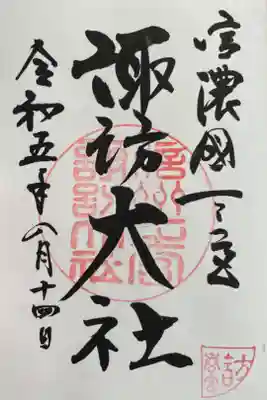 信濃國一之宮
諏訪大社
令和五年八月十四日